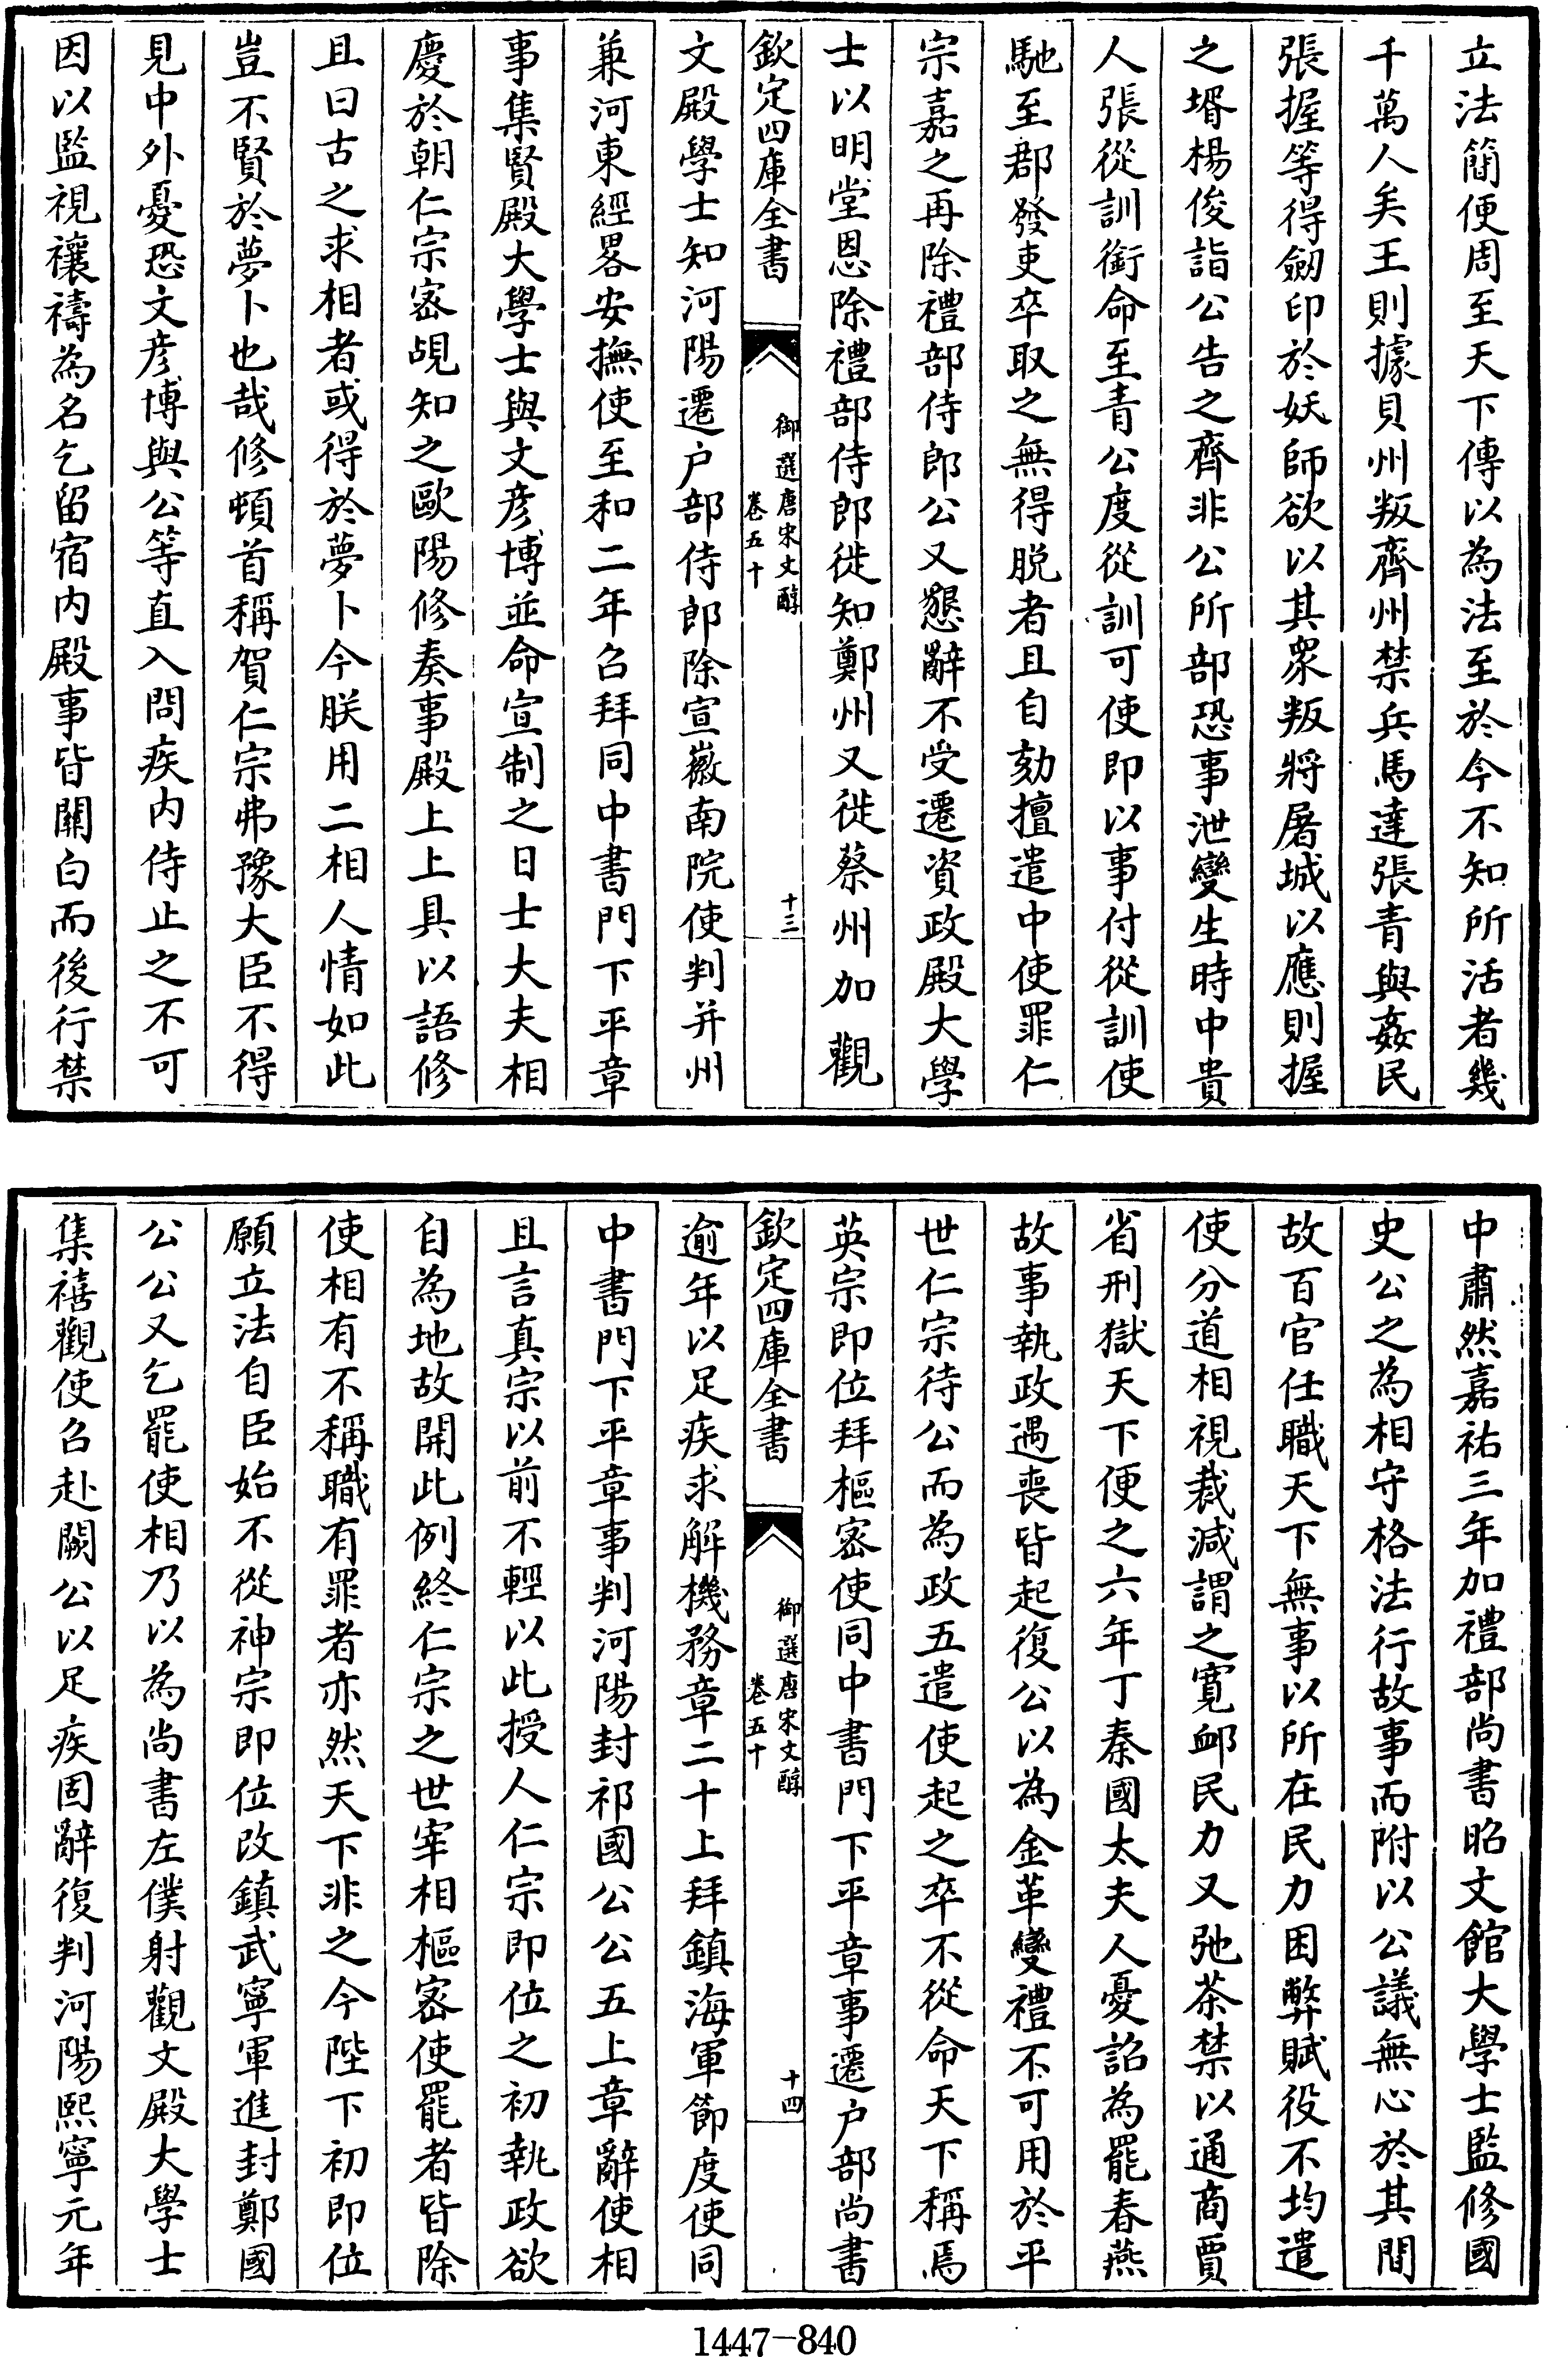 立法簡便周至天下傳以為法至於今不知所活者幾
千萬人矣王則據貝州叛齊州禁兵馬達張青與姦民
張握等得劒印於妖師欲以其衆叛將屠城以應則握
之壻楊俊詣公告之齊非公所部恐事泄變生時中貴
人張從訓銜命至青公度從訓可使即以事付從訓使
馳至郡發吏卒取之無得脱者且自劾擅遣中使罪仁
宗嘉之再除禮部侍郎公又懇辭不受遷資政殿大學
士以明堂恩除禮部侍郎徙知鄭州又徙蔡州加觀
欽定四庫全書
御選唐宋文醇
卷五十
十三
文殿學士知河陽遷户部侍郎除宣徽南院使判并州
兼河東經畧安撫使至和二年召拜同中書門下平章
事集賢殿大學士與文彦博並命宣制之日士大夫相
慶於朝仁宗宻覘知之歐陽修奏事殿上上具以語修
且曰古之求相者或得於夢卜今朕用二相人情如此
豈不賢於夢卜也哉修頓首稱賀仁宗弗豫大臣不得
見中外憂恐文彦博與公等直入問疾内侍止之不可
因以監視禳禱為名乞留宿内殿事皆關白而後行禁
中肅然嘉祐三年加禮部尚書昭文館大學士監修國
史公之為相守格法行故事而附以公議無心於其間
故百官任職天下無事以所在民力困弊賦役不均遣
使分道相視裁減謂之寛邮民力又弛茶禁以通商賈
省刑獄天下便之六年丁秦國太夫人憂詔為罷春燕
故事執政遇喪皆起復公以為金革變禮不可用於平
世仁宗待公而為政五遣使起之卒不從命天下稱焉
英宗即位拜樞宻使同中書門下平章事遷户部尚書
欽定四庫全書
御選唐宋文醇
卷五十
十四
逾年以足疾求解機務章二十上拜鎮海軍節度使同
中書門下平章事判河陽封祁國公公五上章辭使相
且言真宗以前不輕以此授人仁宗即位之初執政欲
自為地故開此例終仁宗之世宰相樞宻使罷者皆除
使相有不稱職有罪者亦然天下非之今陛下初即位
願立法自臣始不從神宗即位改鎮武寧軍進封鄭國
公公又乞罷使相乃以為尚書左僕射觀文殿大學士
集禧觀使召赴闕公以足疾固辭復判河陽熙寧元年
1447-840